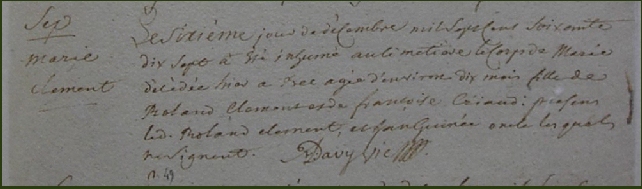 Sep
marie
clement
Le sixième jour de décembre mil sept cens soixante
dix sept à été inhumé au cimetiere le corps de Marie
décédée hier a agée d'environ dix mois fille de
Roland Clement et de francoise presens
led. Roland clement, et oncle lesquels
ne signent. Davy vic